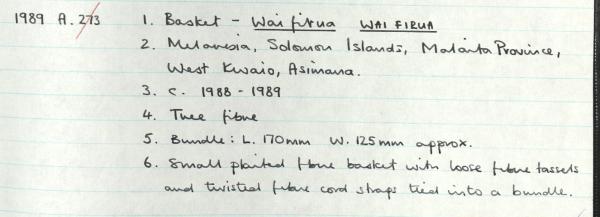 1989 A. 273 1. Basket - Wai firua WAI FIRUA
2. Melanesia, Solomon Islands, Malaita Province,
West Kwaio, Asimana.
3. c. 1988 - 1989
4. Tree fibre
5. Bundle: L. 170mm W. 125mm approx.
6. Small plaited fibre basket with loose fibre tassels
and twisted fibre cord straps tied into a bundle.